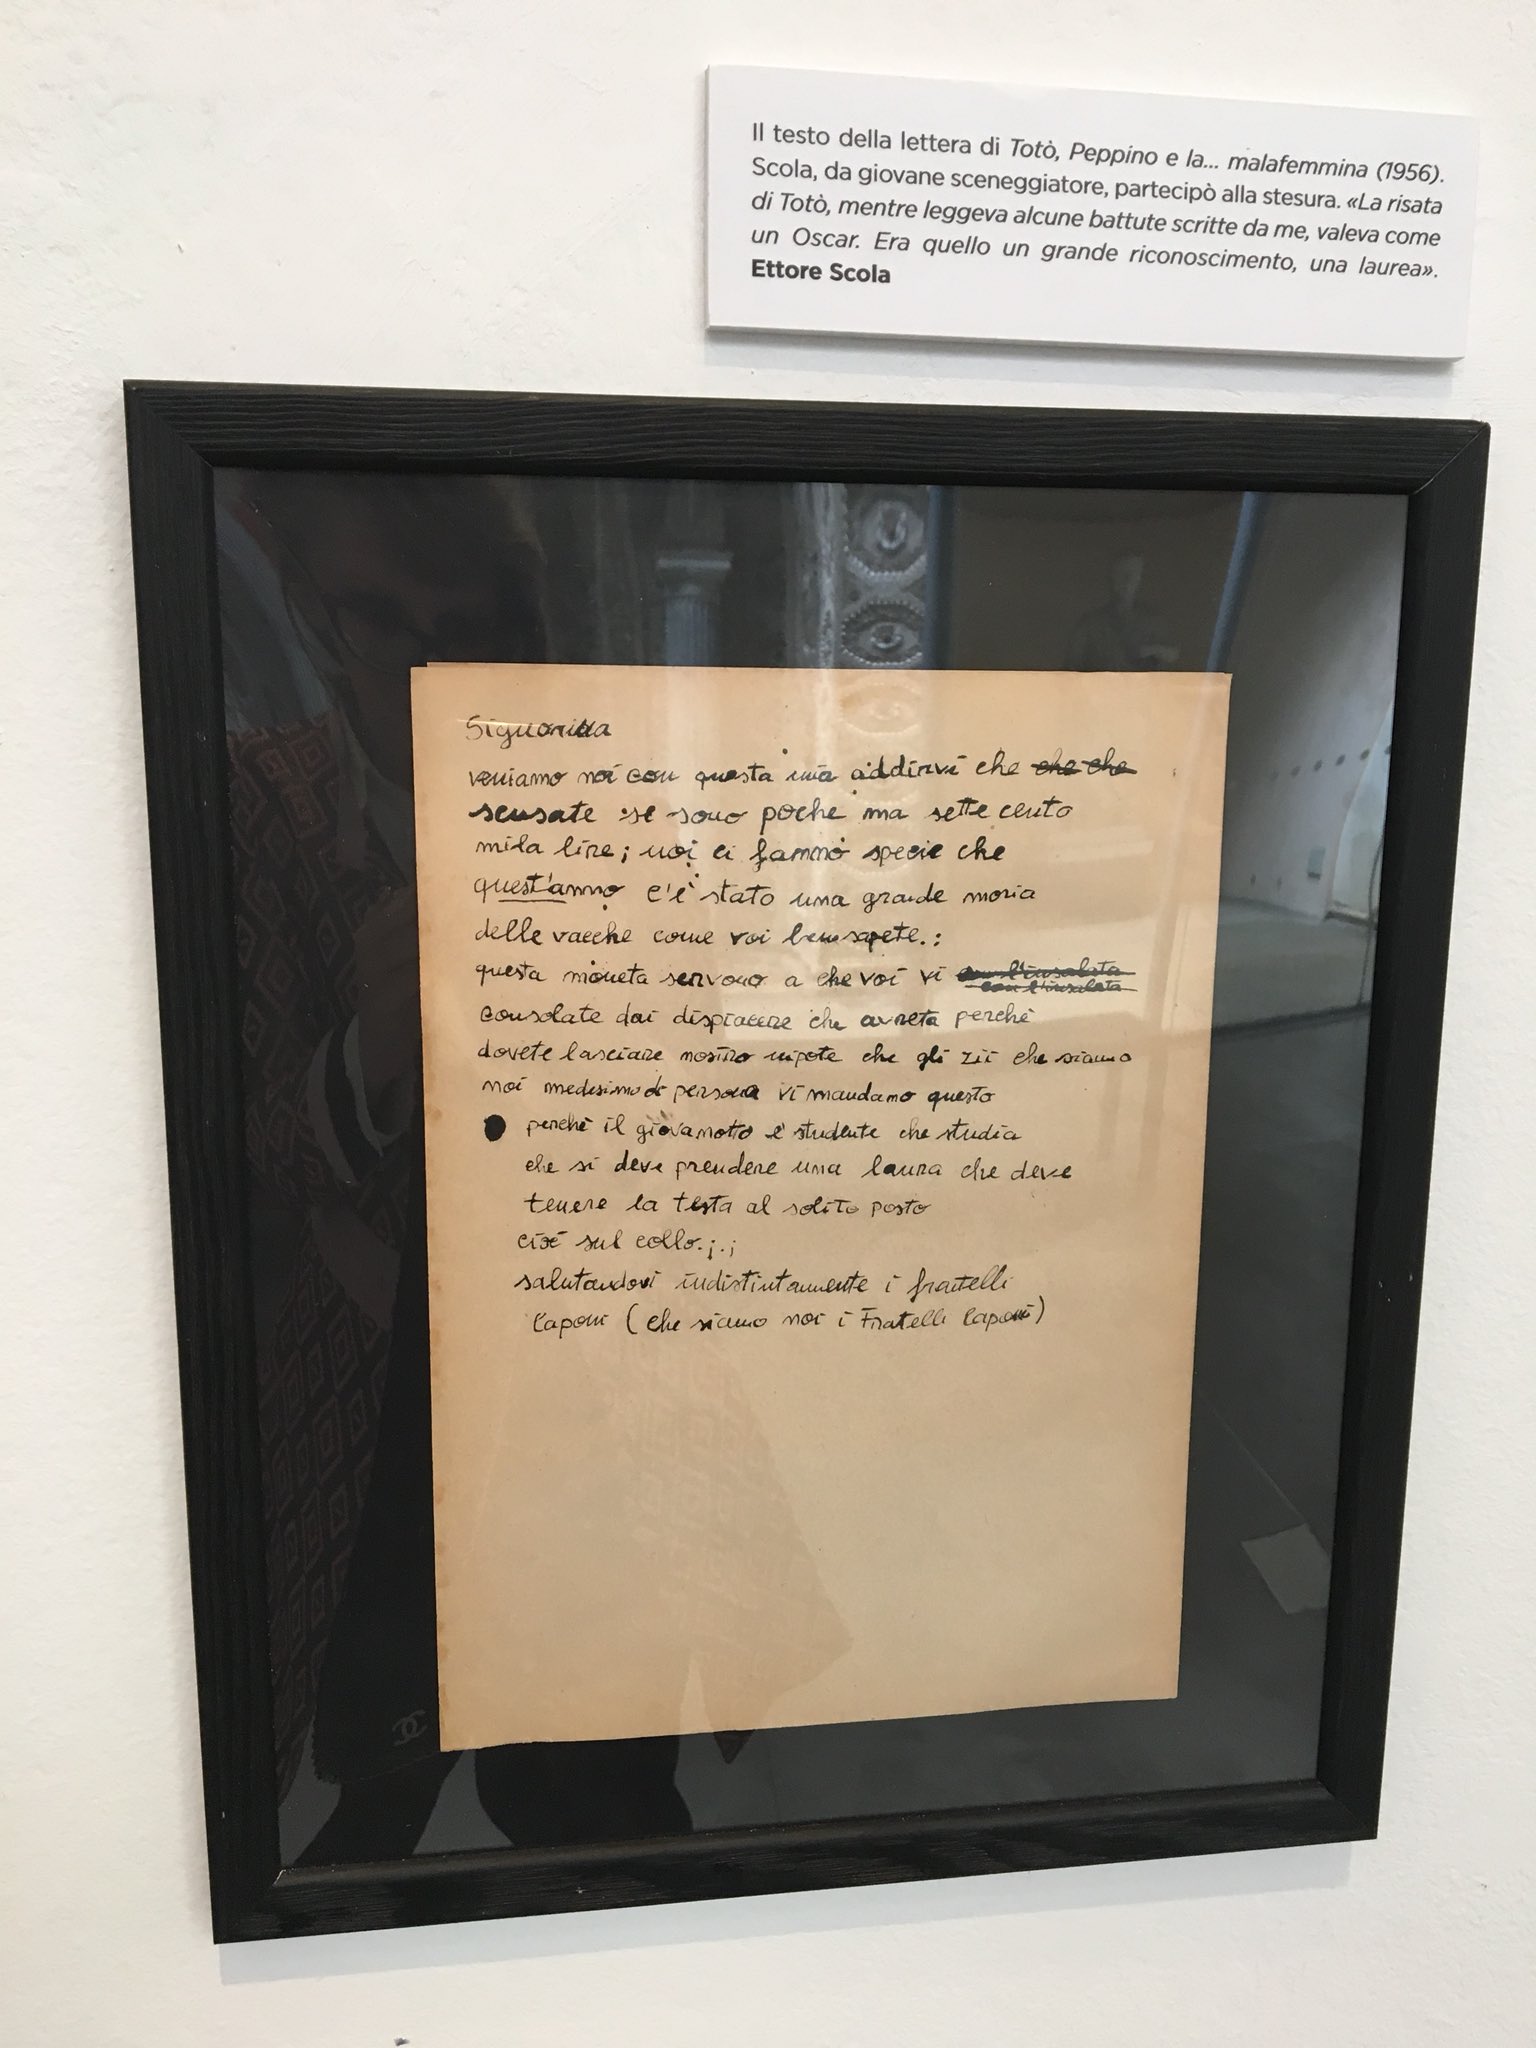 Il testo della lettera di Totò, Peppino e la... malafemmina (1956).
Scola, da giovane sceneggiatore, partecipò alla stesura. «La risata
di Totò, mentre leggeva alcune battute scritte da me, valeva come
un Oscar. Era quello un grande riconoscimento, una laurea».
Ettore Scola
Signorina
veniamo noi con questa mia addirvi che che che
scusate se sono poche ma sette cento
mila lire; noi ci fanno specie che
quest'anno c'è stato una grande moria
delle vacche come voi ben sapete.:
questa moneta servono a che voi vi con l'insalata
con l'insalata
consolate dai dispiacere che avreta perché
dovete lasciare nostro nipote che gli zii che siamo
noi medesimo di persona vi mandamo questo
perché il giovanotto è studente che studia
che si deve prendere una laura che deve
tenere la testa al solito posto
cioè sul collo.;.;
salutandovi indistintamente i fratelli
Caponi (che siamo noi i Fratelli Caponi)